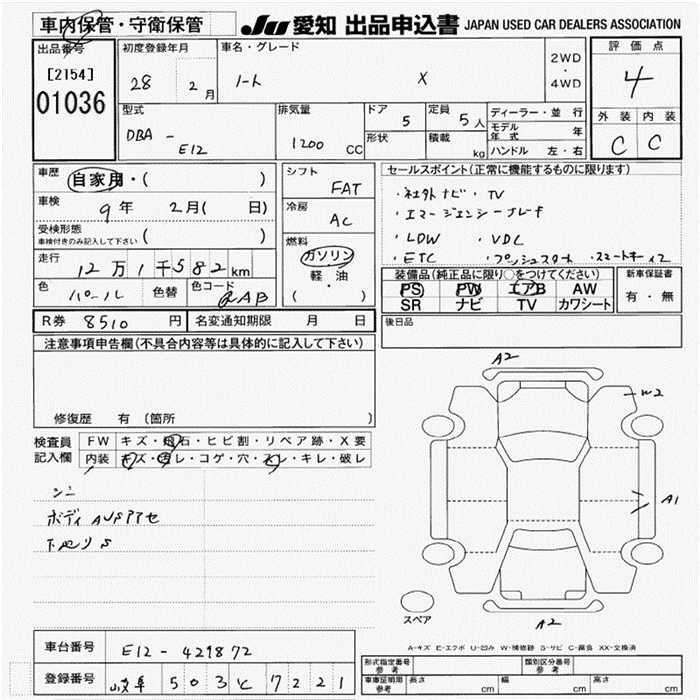 車内保管・守衛保管 JU 愛知 出品申込書 JAPAN USED CAR DEALERS ASSOCIATION
出品番号 初度登録年月 車名・グレード 2WD・4WD 評価点
[2154] 28 2月 ノート X 4
01036
型式 排気量 ドア 定員 ディーラー・並行 外装 内装
DBA - E12 1200 CC 5 5人 モデル年式 年 C C
形状 積載 kg ハンドル 左・右
車歴 自家用・( ) シフト FAT セールスポイント(正常に機能するものに限ります)
車検 9年 2月( 日) 冷房 AC ・社外ナビ・TV
・エマージェンシーブレーキ
受検形態 車検付きのみ記入して下さい ( ) 燃料 ガソリン ・LDW ・VDC
軽・油 ( ) ・ETC ・プッシュスタート ・スマートキー×2
走行 12万1千582km 装備品(純正品に限り○をつけてください) 新車保証書
色 パール 色替 色コード QAB PS PW エアB AW 有・無
SR ナビ TV カワシート
R券 8510 円 名変通知期限 月 日 後日品
注意事項申告欄(不具合内容等は具体的に記入して下さい)
修復歴 有 〔箇所 〕
検査員記入欄 FW キズ・飛石・ヒビ割・リペア跡・X要
内装 キズ・汚レ・コゲ・穴・スレ・キレ・破レ
シミ
ボディ
下廻りS
A2
W2
A1
スペア
A2
A-キズ E-エクボ U-凹み W-補修跡 S-サビ C-腐食 XX-交換済
車台番号 E12-429872
登録番号 岐阜 503 と 7221
形式指定番号 参考 類別区分番号 参考
車庫証明用 参考 長さ cm 幅 cm 高さ cm